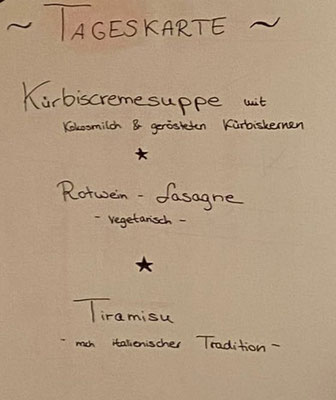 ~ TAGESKARTE ~
Kürbiscremesuppe mit
Kokosmilch & gerösteten Kürbiskernen
★
Rotwein - Lasagne
- vegetarisch -
★
Tiramisu
- nach italienischer Tradition -